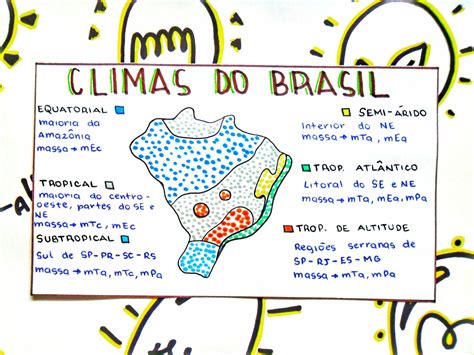 CLIMAS DO BRASIL
EQUATORIAL
maioria da
Amazônia
massa → mEc
TROPICAL
maioria do centro-
oeste, partes do SE e
NE
massa → mTc, mEc
SUBTROPICAL
Sul de SP-PR-SC-RS
massa → mTa, mTc, mPa
SEMI-ÁRIDO
Interior do NE
massa → mTa, mEa
TROP. ATLÂNTICO
Litoral do SE e NE
massa → mTa, mEa, mPa
TROP. DE ALTITUDE
Regiões serranas de
SP-RJ-ES-MG
massa → mTa, mPa